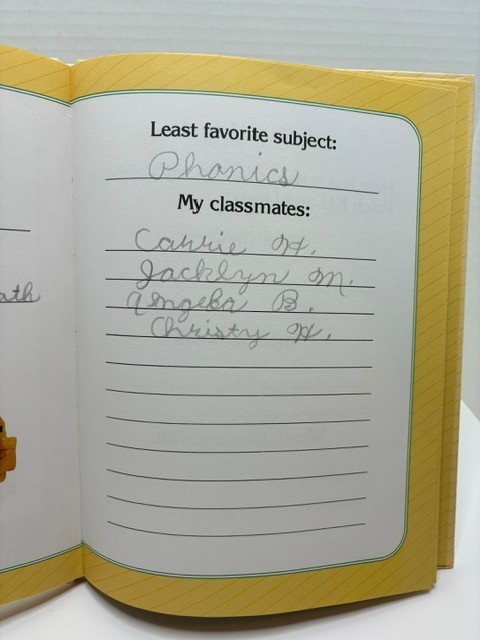 Least favorite subject:
Phonics
My classmates:
Carrie H.
Jacklyn M.
Angela B.
Christy H.
ath